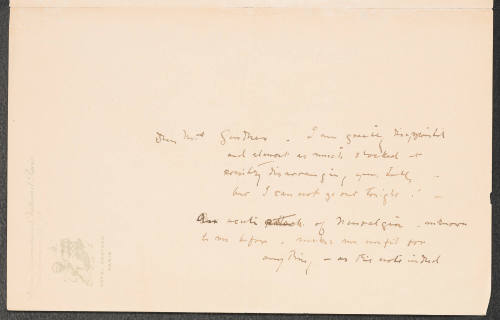 Dear Mrs Gardner. I am greatly disappointed
and almost as much shocked at
possibly disarranging your table -
but I can not go out tonight! -
An acute attack of Neuralgia, unknown
to me before, makes me unfit for
anything - as this note indeed